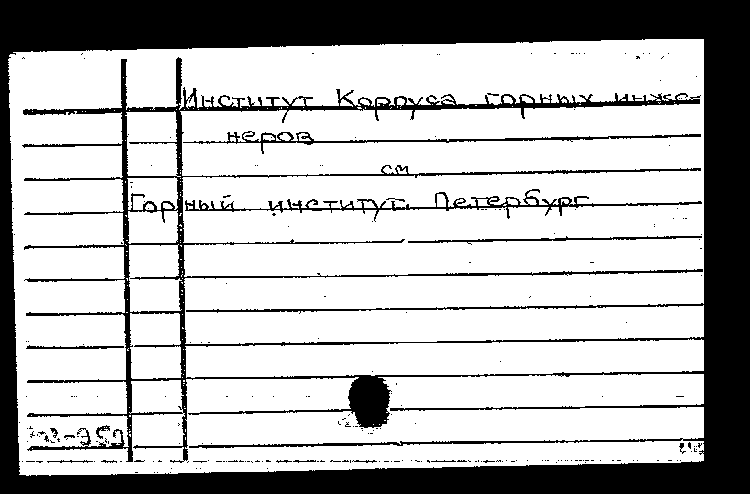 Институт Корпуса горных инже-
неров
см.
Горный институт. Петербург